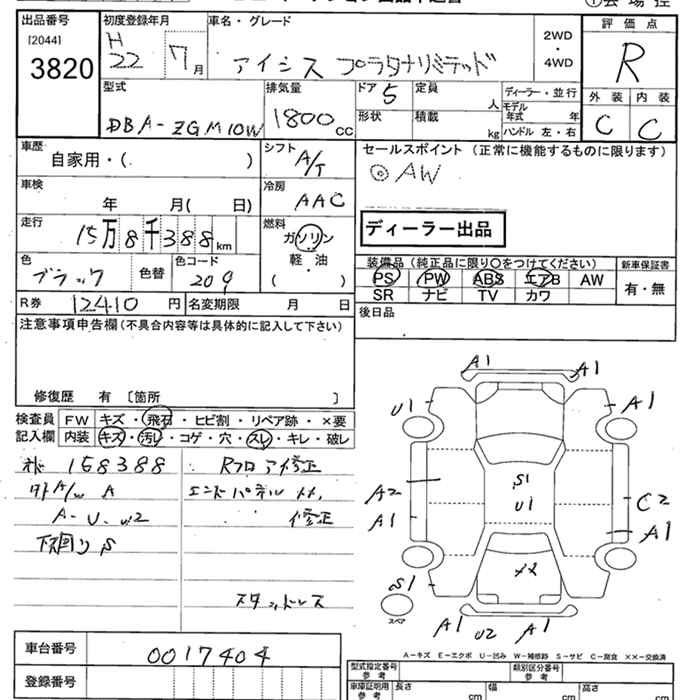 出品番号
[2044]
3820
初度登録年月
H
22 7月
車名・グレード
アイシス プラタナリミテッド
2WD
・
4WD
評価点
R
外装 内装
C C
型式
DBA-ZGM10W
排気量
1800cc
ドア 5
形状
定員 人
積載 kg
ディーラー・並行
モデル年式 年
ハンドル 左・右
車歴
自家用・( )
シフト
A/T
セールスポイント (正常に機能するものに限ります)
◎AW
車検
年 月( 日)
冷房
AAC
ディーラー出品
走行
15万8千388km
燃料
ガソリン
軽・油
( )
色
ブラック
色替
色コード
209
装備品(純正品に限り○をつけてください)
PS PW ABS エアB AW
SR ナビ TV カワ
新車保証書
有・無
R券 12410円
名変期限 月 日
後日品
注意事項申告欄(不具合内容等は具体的に記入して下さい)
修復歴 有 〔箇所 〕
検査員 FW キズ・飛石・ヒビ割・リペア跡・×要
記入欄 内装 キズ・汚レ・コゲ・穴・スレ・キレ・破レ
158388
A/W A
A-U-W2
下廻り S
Rフロア修正
エンドパネル
修正
スタッドレス
A1 A1
U1 A1
S1
U1
A2
A1
C2
A1
S1
スペア
A1 U2 A1
A-キズ E-エクボ U-凹み W-補修跡 S-サビ C-腐食 ××-交換済
車台番号 0017404
登録番号
型式指定番号
参考
類別区分番号
参考
車庫証明用
参考
長さ cm
幅 cm
高さ cm